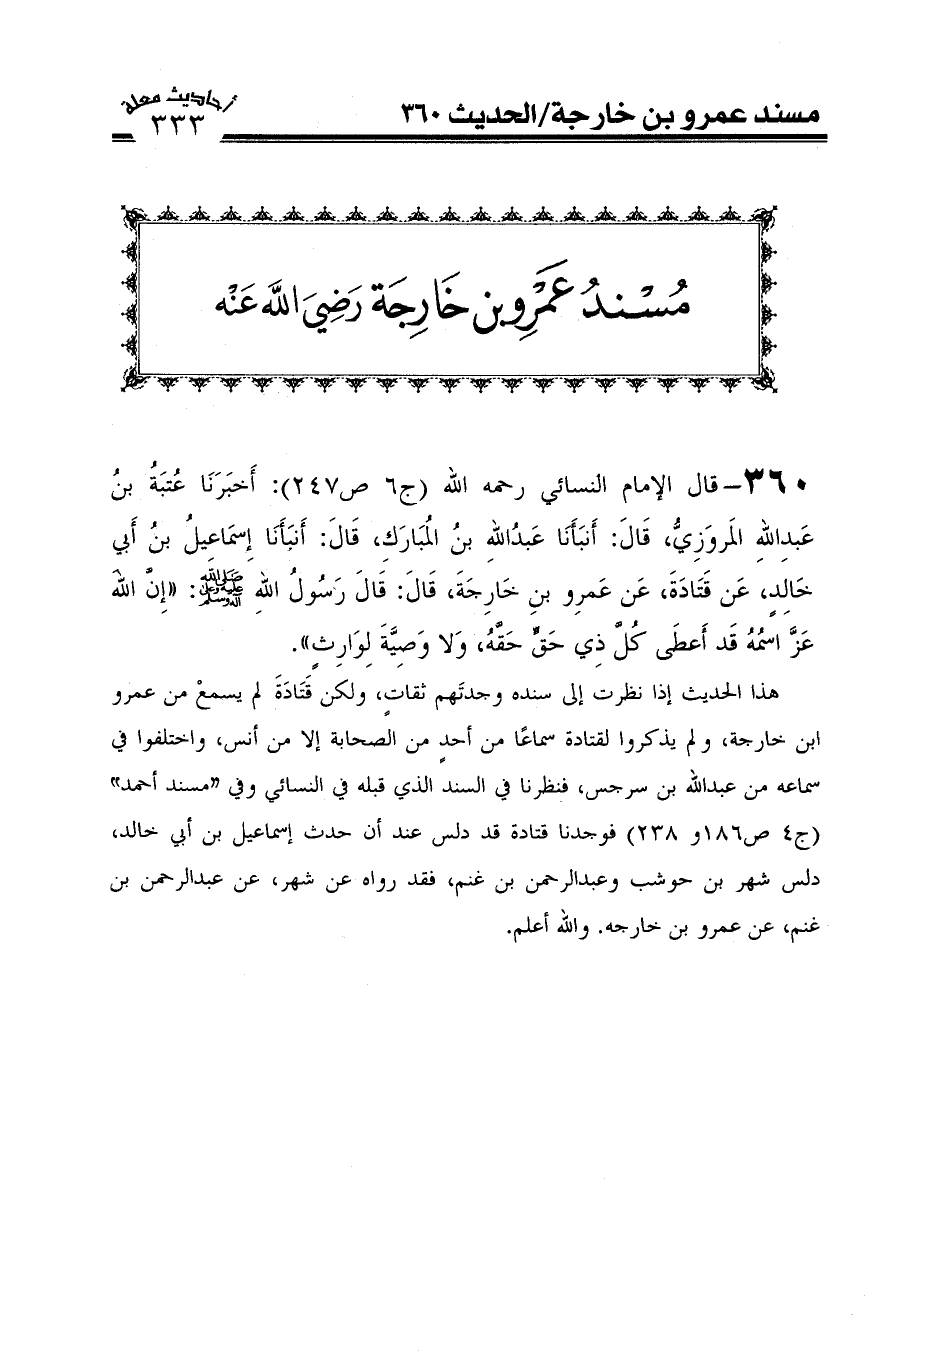 مسند عمرو بن خارجة/الحديث ٣٦٠
أحاديث معلة
٣٣٣
مُسْنَدُ عَمْرِو بن خَارِجَة رَضِيَ اللَّه عَنْه
٣٦٠- قال الإمام النسائي رحمه الله (ج٦ ص٢٤٧): أَخبَرَنَا عُتبَةُ بنُ
عَبدِاللهِ المَروَزِيُّ، قَالَ: أَنبَأَنَا عَبدُاللهِ بنُ المُبَارَكِ، قَالَ: أَنبَأَنَا إِسمَاعِيلُ بنُ أَبِي
خَالِدٍ، عَن قَتَادَةَ، عَن عَمرِو بنِ خَارِجَةَ، قَالَ: قَالَ رَسُولُ اللهِ ﷺ: «إِنَّ اللهَ
عَزَّ اسمُهُ قَد أَعطَى كُلَّ ذِي حَقٍّ حَقَّهُ، وَلا وَصِيَّةَ لِوَارِثٍ».
هذا الحديث إذا نظرت إلى سنده وجدتَهم ثقاتٍ، ولكن قَتَادَةَ لم يسمعْ من عمرو
ابن خارجة، ولم يذكروا لقتادة سماعًا من أحدٍ من الصحابة إلا من أنس، واختلفوا في
سماعه من عبدالله بن سرجس، فنظرنا في السند الذي قبله في النسائي وفي "مسند أحمد"
(ج٤ ص١٨٦و ٢٣٨) فوجدنا قتادة قد دلس عند أن حدث إسماعيل بن أبي خالد،
دلس شهر بن حوشب وعبدالرحمن بن غنم، فقد رواه عن شهر، عن عبدالرحمن بن
غنم، عن عمرو بن خارجه. والله أعلم.